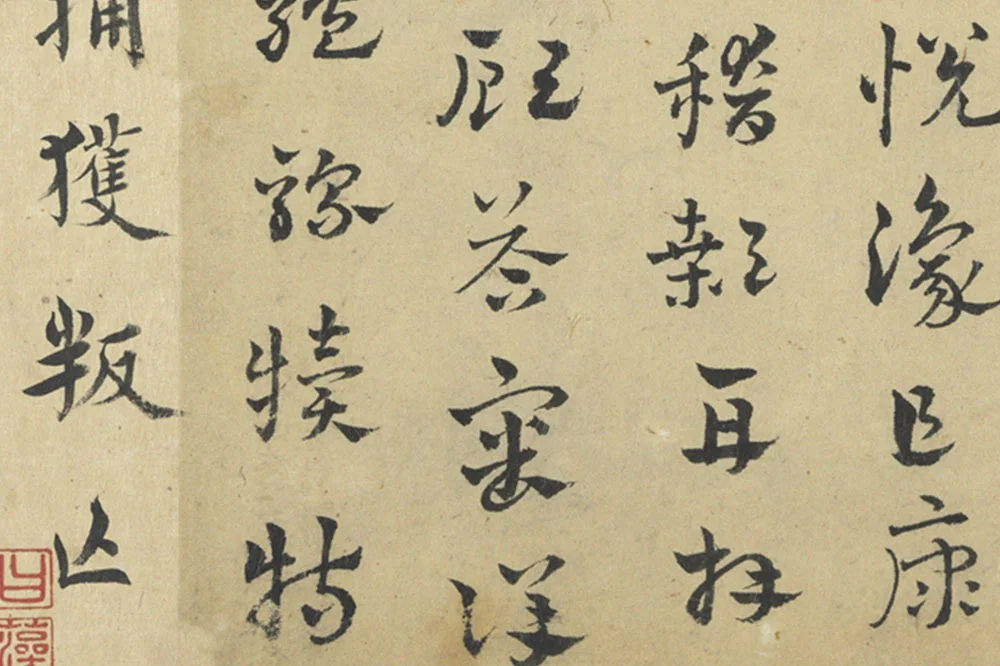 悅豫且康
稽顙再拜
顧答審詳
驢騾犢特
捕獲叛亡